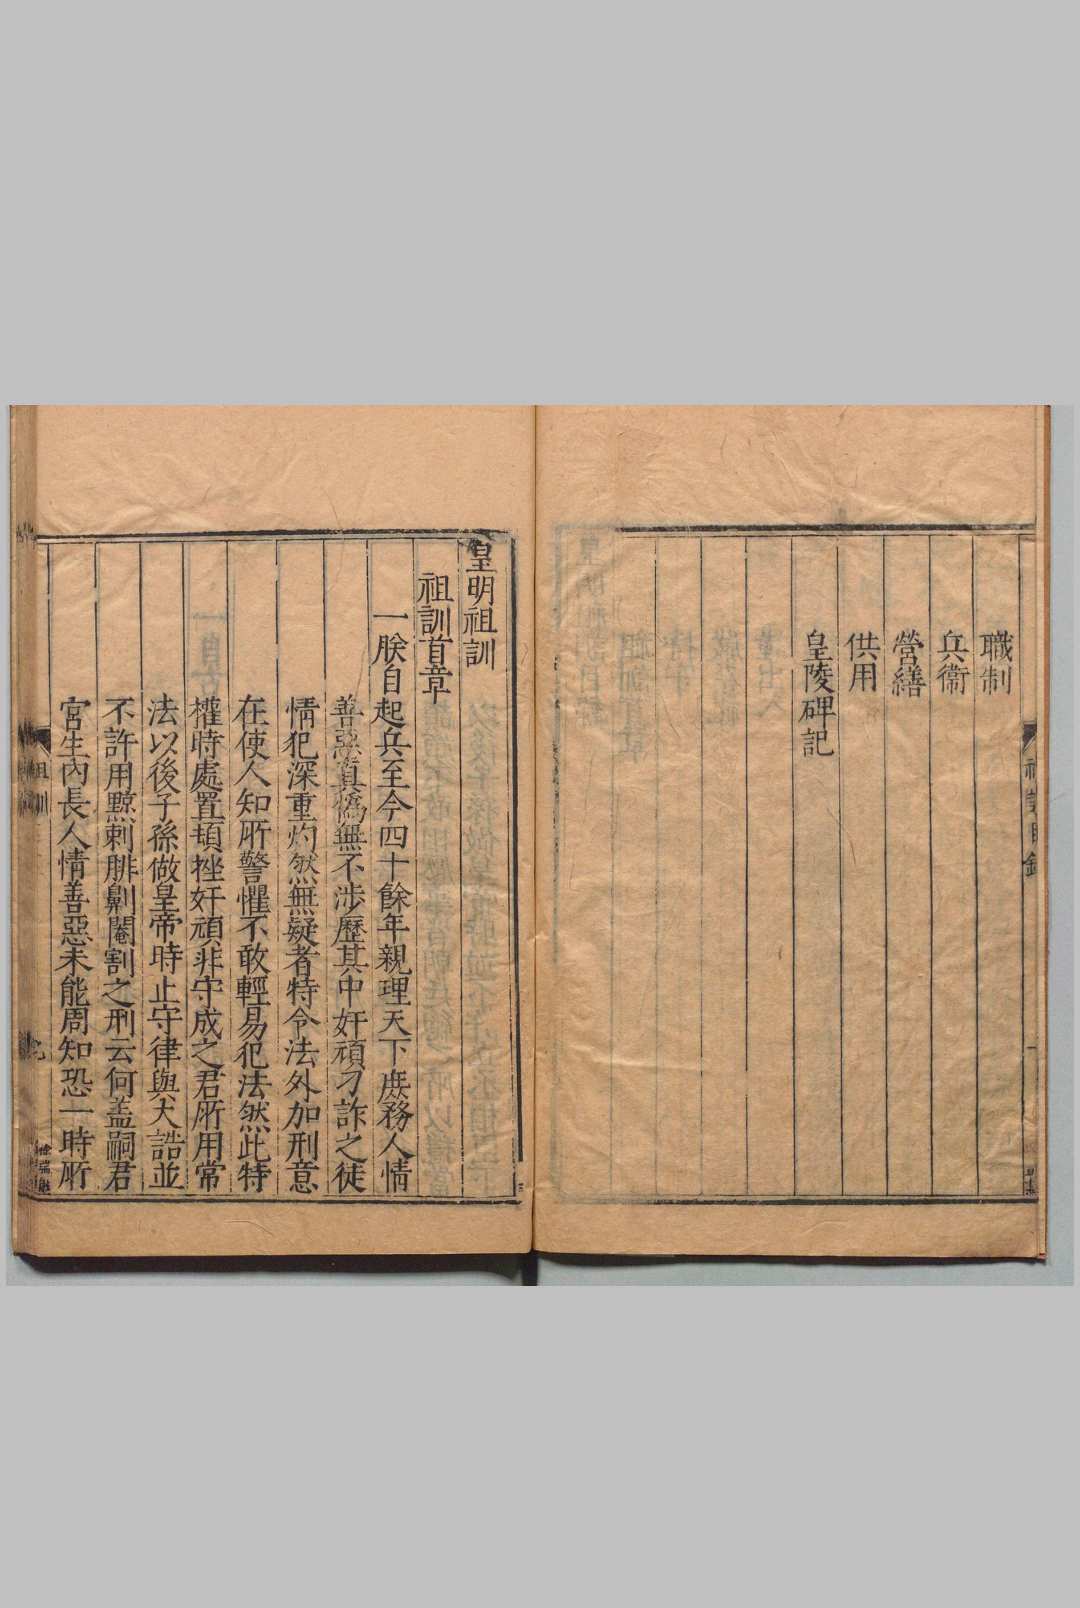 職制
兵衞
營繕
供用
皇陵碑記
皇明祖訓
祖訓首章
一朕自起兵至今四十餘年親理天下庶務人情
善惡真僞無不涉歷其中奸頑刁詐之徒
情犯深重灼然無疑者特令法外加刑意
在使人知所警懼不敢輕易犯法然此特
權時處置頓挫奸頑非守成之君所用常
法以後子孫做皇帝時止守律與大誥並
不許用黥刺腓劓閹割之刑云何蓋嗣君
宮生內長人情善惡未能周知恐一時所
祖訓